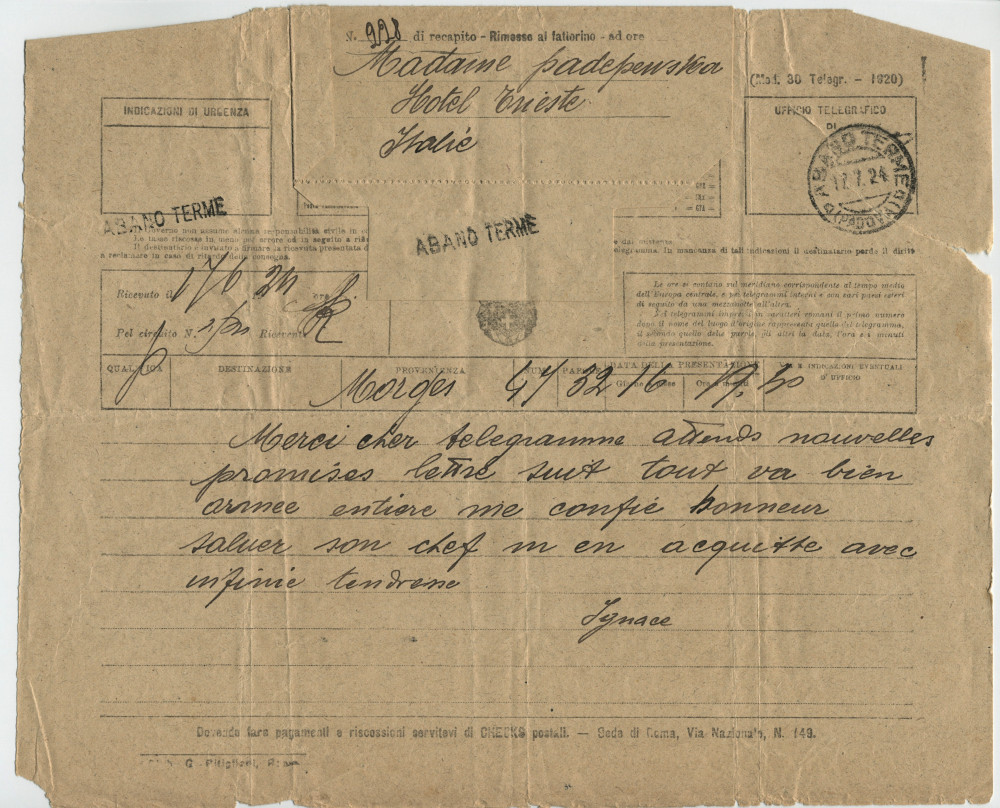 N. 228 di recapito - Rimesso al fattorino - ad ore
Madame padepewska
Hotel Trieste
Italie
(Mod. 30 Telegr. - 1920)
INDICAZIONI DI URGENZA
UFFICIO TELEGRAFICO
DI
ABANO TERME
17.7.24
(PADOVA)
ABANO TERME
ABANO TERME
Il destinatario è invitato a firmare la ricevuta presentata
a reclamare in caso di ritardo della consegna.
telegramma. In mancanza di tali indicazioni il destinatario perde il diritto
Ricevuto il 17/6 24 ore
Pel circuito N. Ricevente
Le ore si contano sul meridiano corrispondente al tempo medio
dell'Europa centrale, e pei telegrammi interni e con vari paesi esteri
di seguito da una mezzanotte all'altra.
Nei telegrammi impressi in caratteri romani il primo numero
dopo il nome del luogo d'origine rappresenta quello del telegramma,
il secondo quello delle parole, gli altri la data, l'ora e i minuti
della presentazione.
QUALIFICA DESTINAZIONE PROVENIENZA NUM. PAROLE DATA DELLA PRESENTAZIONE VIA E INDICAZIONI EVENTUALI
Giorno e mese Ore e minuti D'UFFICIO
Morges 47 32 16 19.30
Merci cher telegramme attends nouvelles
promises lettre suit tout va bien
armee entiere me confie honneur
saluer son chef m en acquitte avec
infinie tendresse
Ignace
Dovendo fare pagamenti e riscossioni servitevi di CHECKS postali. — Sede di Roma, Via Nazionale, N. 149.
G. Pitigliani, Roma